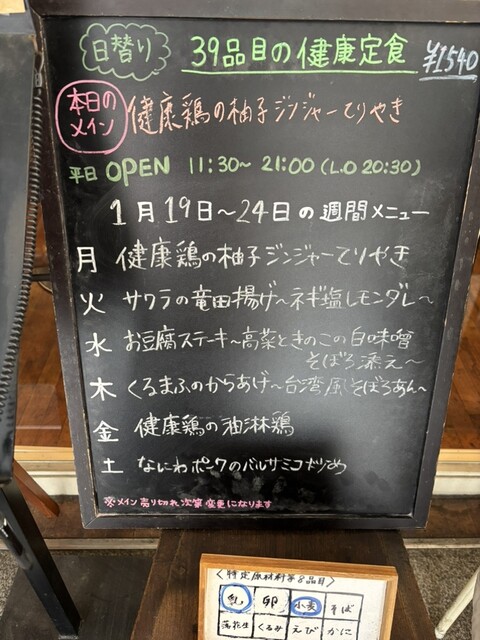 日替り 39品目の健康定食 ¥1540
本日のメイン 健康鶏の柚子ジンジャーてりやき
平日 OPEN 11:30~21:00(L.O 20:30)
1月19日~24日の週間メニュー
月 健康鶏の柚子ジンジャーてりやき
火 サワラの竜田揚げ~ネギ塩レモンダレ~
水 お豆腐ステーキ~高菜ときのこの白味噌
そぼろ添え~
木 くるまふのからあげ~台湾風そぼろあん~
金 健康鶏の油淋鶏
土 なにわポークのバルサミコ炒め
※メイン売り切れ次第変更になります
<特定原材料等8品目>
乳 卵 小麦 そば
落花生 くるみ えび かに